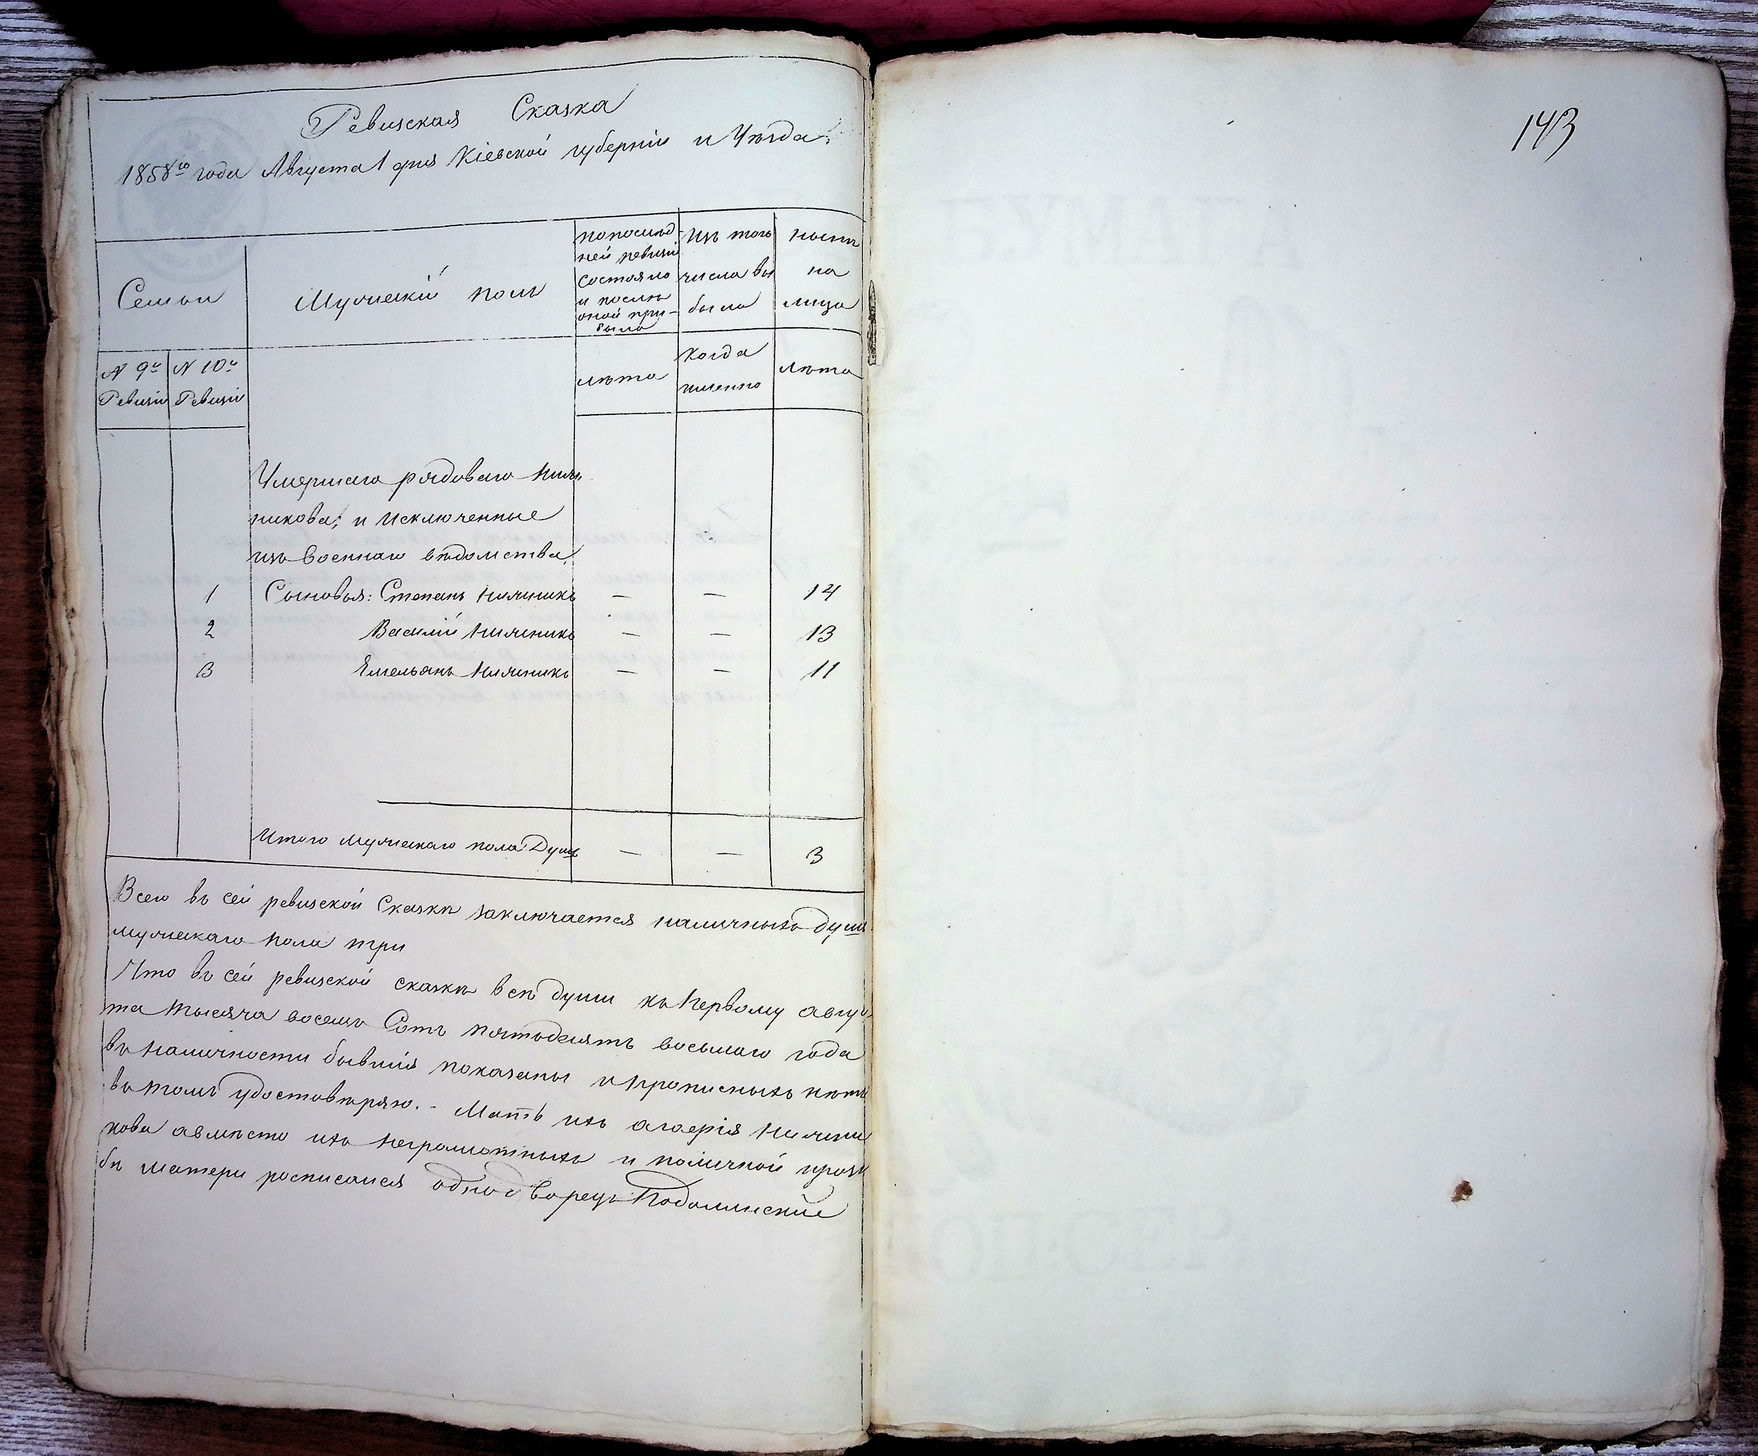 Ревизская Сказка
1858го года Августа 1 дня Кіевской губерніи и Уѣзда.
Семьи
Мужескій полъ
по послѣд
ней ревизіи
состояло
и послѣ
оной при-
было
Изъ того
числа вы
было
Нынѣ
на
лицо
№ 9й
Ревизіи
№ 10й
Ревизіи
лѣта
Когда
именно
Лѣта
Умершаго рядоваго
и исключенные
изъ военнаго вѣдомства,
1 Сыновья: Степанъ — — 14
2 Василій — — 13
3 Емельянъ — — 11
Итого мужескаго пола Душъ — — 3
Всего въ сей ревизской Сказкѣ заключается наличныхъ душъ
мужескаго пола три
Что въ сей ревизской сказкѣ всѣ души къ Первому авгу
та тысяча восемь Сотъ пятьдесятъ восьмаго года
въ наличности бывшія показаны и прописныхъ нѣтъ
въ томъ удостовѣряю. - Мать ихъ
кова авмѣсто ихъ неграмотныхъ и по личной прозь
бѣ матери росписался однодворецъ Подолинскій
143